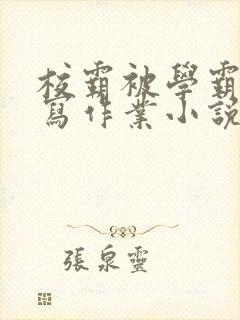 校霸被學霸
寫作業小說
張泉靈